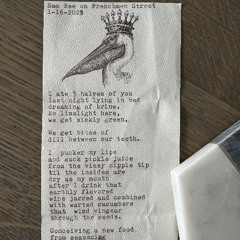 Sam Bee on Frenchmen Street
1-16-2025
I ate 3 halves of you
last night lying in bed
dreaming of brine.
No limelight here,
we get sickly green.
We get bites of
dill between our teeth.
I pucker my lips
and suck pickle juice
from the winey sipple
til the insides are
dry as my mouth
after I drink that
earthly flavored
wine jarred and combined
with warted cucumbers
that wind vinegar
through the seeds.
Conceiving a new food
from seasoning